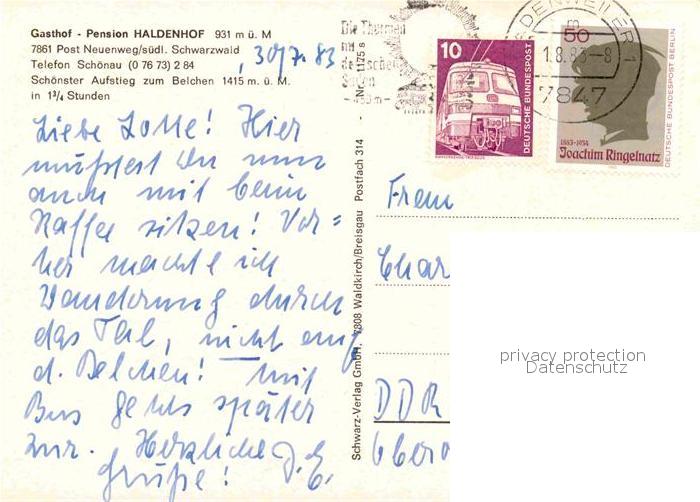 Gasthof - Pension HALDENHOF 931 m ü. M
7861 Post Neuenweg/südl. Schwarzwald
Telefon Schönau (0 76 73) 2 84
Schönster Aufstieg zum Belchen 1415 m. ü. M.
in 1¾ Stunden
, 30/7. 83
Liebe Lotte! Hier
müßtest Du nun
auch mit beim
Kaffee sitzen! Vor=
her machte ich
Wanderung durch
das Tal, nicht auf
d. Belchen! Mit
Bus gehts später
zur. Herzliche
Grüße! J. E.
Schwarz-Verlag GmbH. 7808 Waldkirch/Breisgau Postfach 314 - Nr. 1175 s
Die Thermen
im
Süden
DENWEILER 1
1.8.83-8
7847
10
DEUTSCHE BUNDESPOST
50
1883-1934
Joachim Ringelnatz
DEUTSCHE BUNDESPOST BERLIN
Frau
Char
DDR
privacy protection
Datenschutz